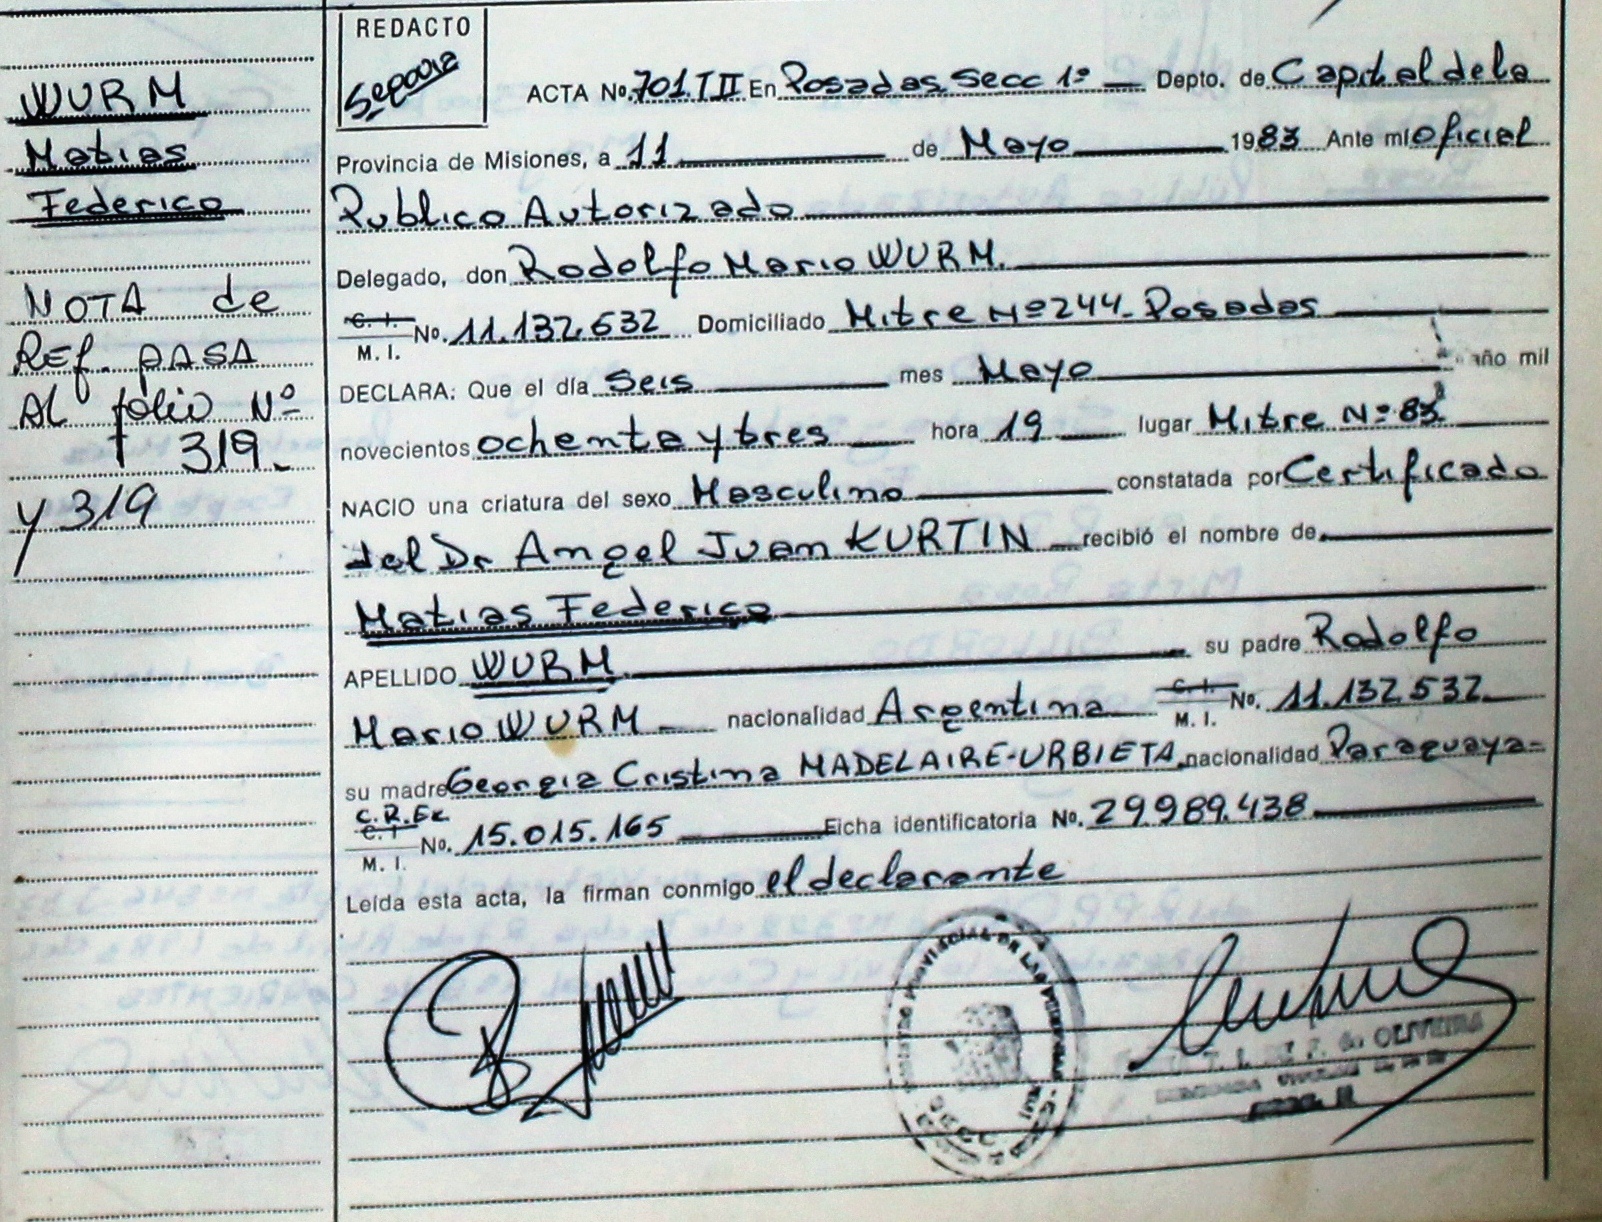 WURM
Matias
Federico
NOTA de
REf. pASA
Al folio Nº
319.
y 319
REDACTO
ACTA No. 701 TII En Posadas Secc 1º Depto. de Capital de la
Provincia de Misiones, a 11 de Mayo 1983 Ante mí Oficial
Publico Autorizado
Delegado, don Rodolfo Mario WURM.
C. I. M. I. No. 11.132.532 Domiciliado Mitre Nº 244. Posadas
DECLARA: Que el día Seis mes Mayo año mil
novecientos ochenta y tres hora 19 lugar Mitre Nº 83
NACIO una criatura del sexo Masculino constatada por Certificado
del Dr Angel Juan KURTIN recibió el nombre de
Matias Federico
APELLIDO WURM su padre Rodolfo
Mario WURM nacionalidad Argentina C. I. M. I. No. 11.132.532
su madre Georgia Cristina MADELAIRE-URBIETA, nacionalidad Paraguaya-
C.R.Ex C. I M. I. No. 15.015.165 Ficha identificatoria No. 29.989.438
Leída esta acta, la firman conmigo el declarante
OLIVEIRA